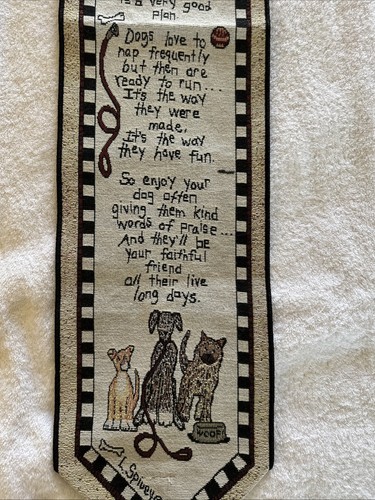 is a very good
plan.
Dogs love to
nap frequently
but then are
ready to run...
It's the way
they were
made,
It's the way
they have fun.
So enjoy your
dog often
giving them kind
words of praise...
And they'll be
your faithful
friend
all their live
long days.
WOOF!
L. Spivey